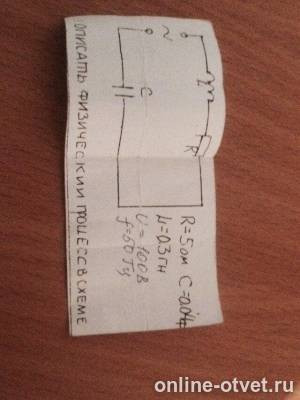 ~
L
R
C
R=5 ом C=0.04ф
И=0.3 гн
U=100В
f=60 Гц
ОПИСАТЬ ФИЗИЧЕСКИЙ ПРОЦЕСС В СХЕМЕ
online-otvet.ru